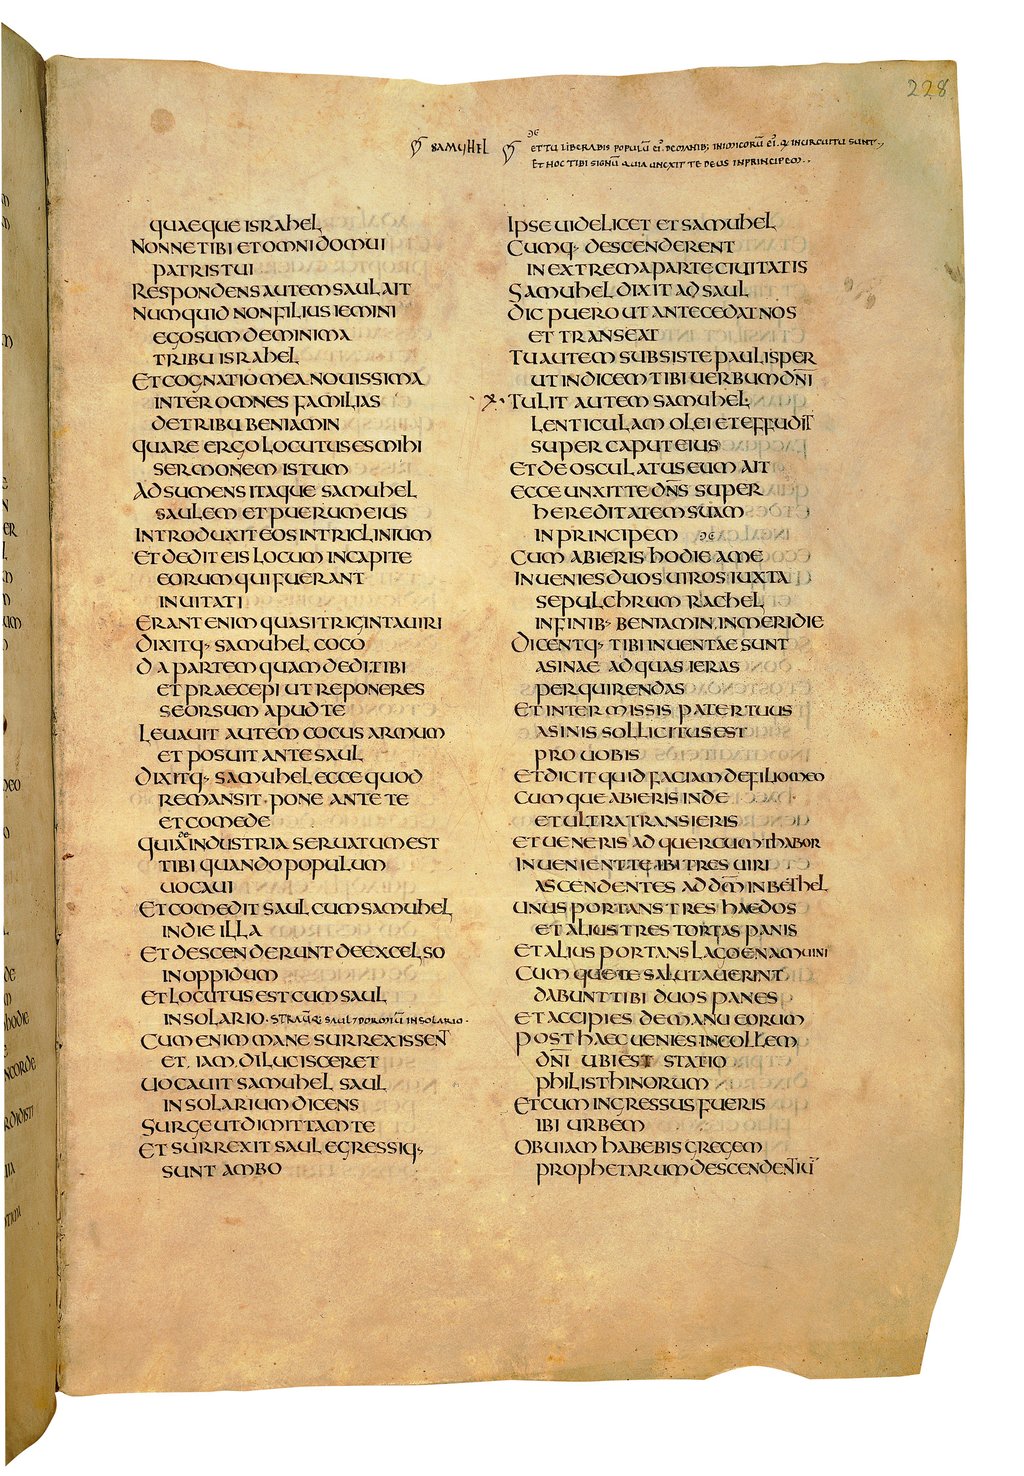 228
SAMUHEL
ƏE
ET TU LIBERABIS POPULŪ EI'. DE MANIB; INIMICORŪ EI'. Q IN CIRCUITU SUNT.,
ET HOC TIBI SIGNŪ QUIA UNCXIT TE DEUS IN PRINCIPEM..
QUAEQUE ISRAHEL
NONNE TIBI ET OMNI DOMUI
PATRIS TUI
RESPONDENS AUTEM SAUL AIT
NUMQUID NON FILIUS IEMINI
EGO SUM DE MINIMA
TRIBU ISRAHEL
ET COGNATIO MEA NOUISSIMA
INTER OMNES FAMILIAS
DE TRIBU BENIAMIN
QUARE ERGO LOCUTUS ES MIHI
SERMONEM ISTUM
ADSUMENS ITAQUE SAMUHEL
SAULEM ET PUERUM EIUS
INTRODUXIT EOS IN TRICLINIUM
ET DEDIT EIS LOCUM IN CAPITE
EORUM QUI FUERANT
INUITATI
ERANT ENIM QUASI TRIGINTA UIRI
DIXITQ· SAMUHEL COCO
DA PARTEM QUAM DEDI TIBI
ET PRAECEPI UT REPONERES
SEORSUM APUD TE
LEUAUIT AUTEM COCUS ARMUM
ET POSUIT ANTE SAUL
DIXITQ· SAMUHEL ECCE QUOD
REMANSIT· PONE ANTE TE
ET COMEDE
QUIA DE INDUSTRIA SERUATUM EST
TIBI QUANDO POPULUM
UOCAUI
ET COMEDIT SAUL CUM SAMUHEL
IN DIE ILLA
ET DESCENDERUNT DE EXCELSO
IN OPPIDUM
ET LOCUTUS EST CUM SAUL
IN SOLARIO· STRAUQ; SAUL 7 DORMIŪ IN SOLARIO·
CUM ENIM MANE SURREXISSENT
ET IAM DILUCISCERET
UOCAUIT SAMUHEL SAUL
IN SOLARIUM DICENS
SURGE UT DIMITTAM TE
ET SURREXIT SAUL EGRESSIQ·
SUNT AMBO
IPSE UIDELICET ET SAMUHEL
CUMQ· DESCENDERENT
IN EXTREMA PARTE CIUITATIS
SAMUHEL DIXIT AD SAUL
DIC PUERO UT ANTECEDAT NOS
ET TRANSEAT
TU AUTEM SUBSISTE PAULISPER
UT INDICEM TIBI UERBUM DN̄I
TULIT AUTEM SAMUHEL
LENTICULAM OLEI ET EFFUDIT
SUPER CAPUT EIUS
ET DEOSCULATUS EUM AIT
ECCE UNXIT TE DN̄S SUPER
HEREDITATEM SUAM
IN PRINCIPEM ƏE
CUM ABIERIS HODIE A ME
INUENIES DUOS UIROS IUXTA
SEPULCHRUM RACHEL
IN FINIB· BENIAMIN, IN MERIDIE
DICENTQ· TIBI INUENTAE SUNT
ASINAE AD QUAS IERAS
PERQUIRENDAS
ET INTERMISSIS PATER TUUS
ASINIS SOLLICITUS EST
PRO UOBIS
ET DICIT QUID FACIAM DE FILIO MEO
CUMQUE ABIERIS INDE
ET ULTRA TRANSIERIS
ET UENERIS AD QUERCUM THABOR
INUENIENT TE IBI TRES UIRI
ASCENDENTES AD DM̄ IN BETHEL
UNUS PORTANS TRES HAEDOS
ET ALIUS TRES TORTAS PANIS
ET ALIUS PORTANS LAGOENAM UINI
CUMQUE TE SALUTAUERINT
DABUNT TIBI DUOS PANES
ET ACCIPIES DE MANU EORUM
POST HAEC UENIES IN COLLEM
DN̄I UBI EST STATIO
PHILISTHINORUM
ET CUM INGRESSUS FUERIS
IBI URBEM
OBUIAM HABEBIS GREGEM
PROPHETARUM DESCENDENTIŪ